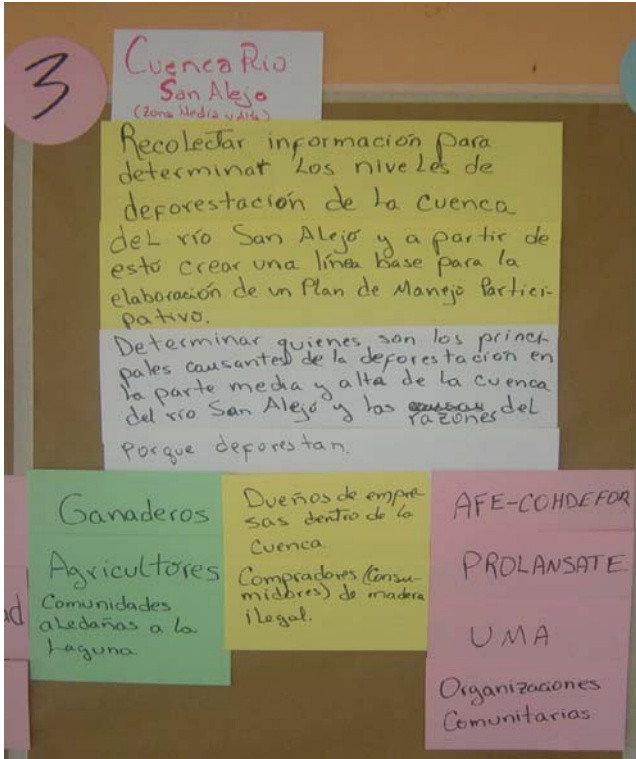 3
Cuenca Rio
San Alejo
(Zona Media y Alta)
Recolectar información para
determinar Los niveles de
deforestación de La cuenca
del río San Alejo y a partir de
esto crear una línea base para la
elaboración de un Plan de Manejo Partici-
pativo.
Determinar quienes son los princi-
pales causantes de la deforestación en
la parte media y alta de La cuenca
del río San Alejo y las razones del
porque deforestan.
Ganaderos
Agricultores
Comunidades
aledañas a la
Laguna
Dueños de empre-
sas dentro de la
Cuenca.
Compradores (Consu-
midores) de madera
ilegal.
AFE-COHDEFOR
PROLANSATE
UMA
Organizaciones
Comunitarias
ad